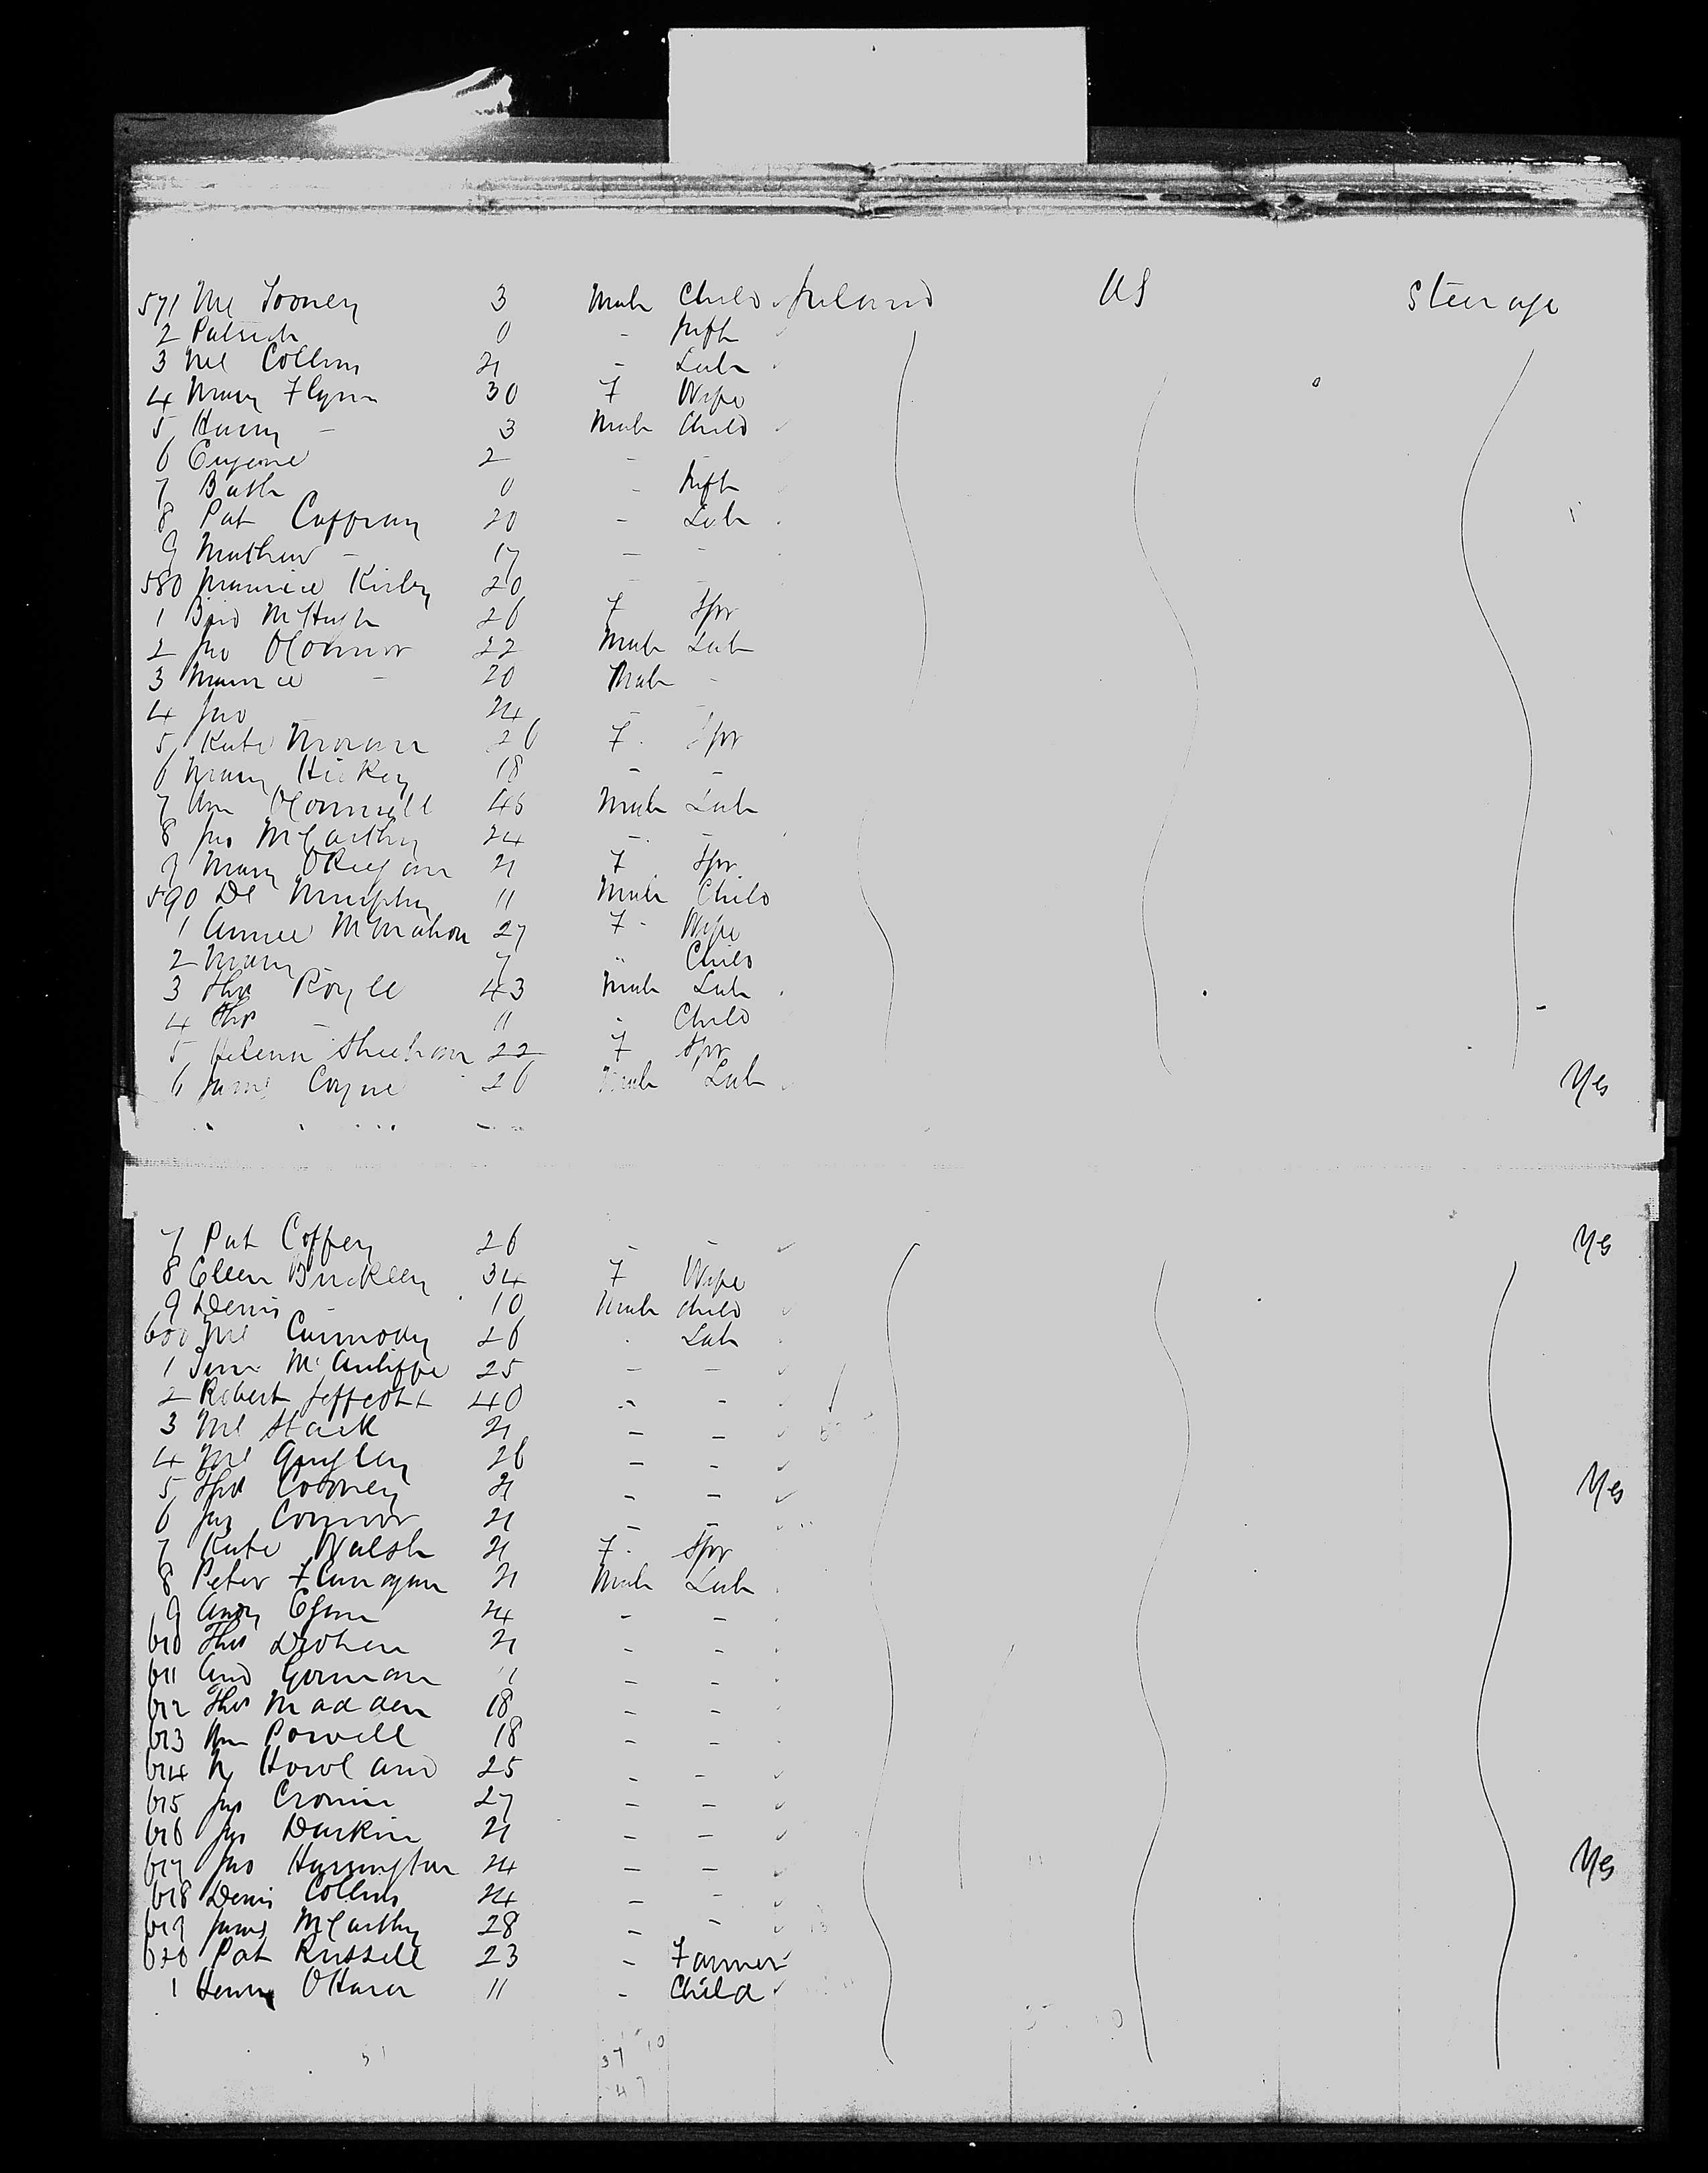 571 Ml Tooney 3 Male Child Ireland US Steerage
2 Patrick 0 - Inft
3 Ml Collins 21 - Lab
4 Mary Flynn 30 F Wife
5 Harry - 3 Male Child
6 Eugene 2 - -
7 Bath 0 - Inft
8 Pat Caffray 20 - Lab
9 Mathew - 17 - -
580 Maurice Kirby 20 - -
1 Brid McHugh 26 F Spr
2 Jno OConnor 22 Male Lab
3 Maurice - 20 Male -
4 Jno - 24 - -
5 Kate Moran 26 F Spr
6 Mary Hickey 18 - -
7 Wm OConnell 46 Male Lab
8 Jno McCarthy 24 - -
9 Mary OKeefe 21 F Spr
590 Dl Murphy 11 Male Child
1 Annie McMahon 27 F Wife
2 Mary - 7 " Child
3 Thos Royle 43 Male Lab
4 Thos - 11 - Child
5 Helena Sheehan 22 F Spr
6 James Coyne 26 Male Lab Yes
7 Pat Coffey 26 - - Yes
8 Ellen Buckley 34 F Wife
9 Denis - 10 Male Child
600 Ml Carmody 26 - Lab
1 Tim McAuliffe 25 - -
2 Robert Jeffcott 40 - -
3 Ml Stack 21 - -
4 Ml Quigley 26 - -
5 Thos Cooney 21 - - Yes
6 Jas Connor 21 - -
7 Kate Walsh 21 F Spr
8 Peter Flanagan 21 Male Lab
9 Andy Egan 24 - -
610 Thos Drohan 21 - -
611 And Gorman - -
612 Thos Madden 18 - -
613 Wm Powell 18 - -
614 Howland 25 - -
615 Jas Cronin 27 - -
616 Jas Durkin 21 - -
617 Jno Harrington 24 - - Yes
618 Denis Collins 24 - -
619 James McCarthy 28 - -
620 Pat Russell 23 - Farmer
1 Henry OHara 11 - Child
37 10
47